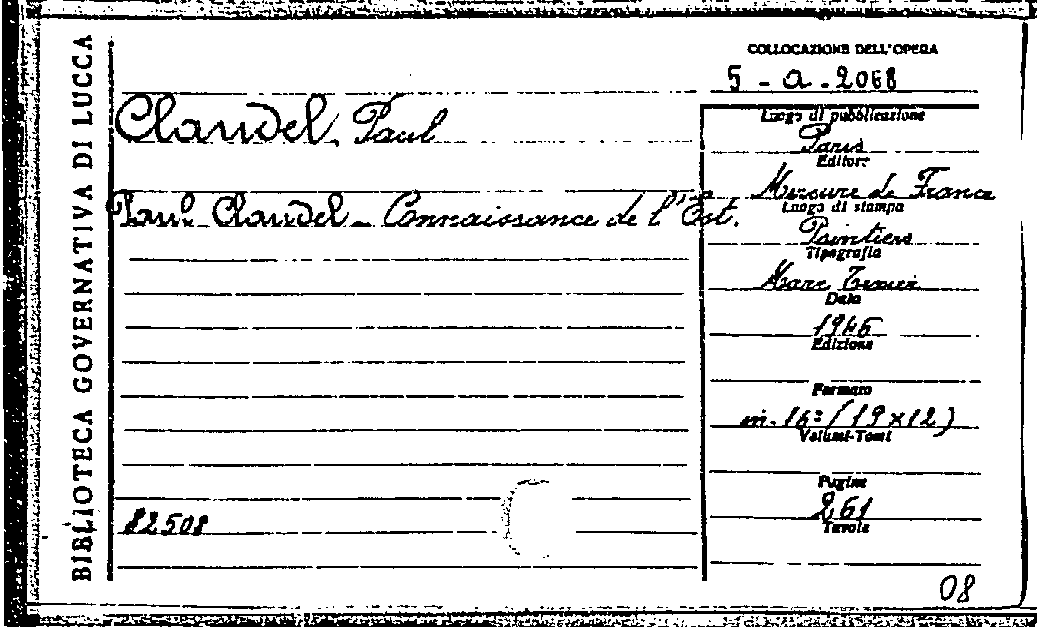 BIBLIOTECA GOVERNATIVA DI LUCCA
COLLOCAZIONE DELL'OPERA
5 - a. 2068
Claudel, Paul
Paul Claudel - Connaissance de l'Est.
Luogo di pubblicazione
Paris
Editore
Mercure de France
Luogo di stampa
Tipografia
Marc Texier
Data
1946
Edizione
Formato
in. 16º (19 x 12)
Volumi-Tomi
Pagine
261
Tavole
82508
08